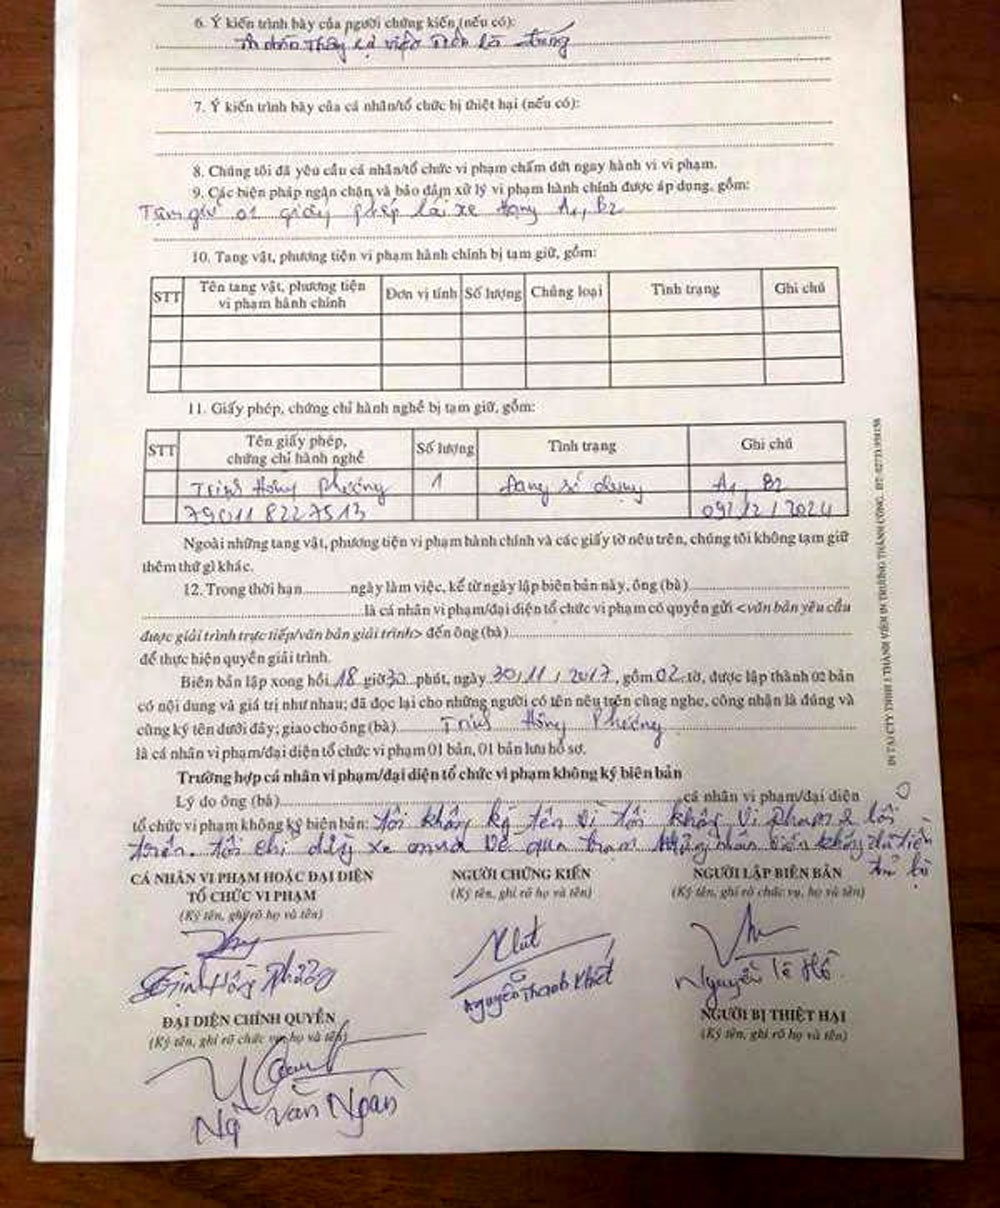 6. Ý kiến trình bày của người chứng kiến (nếu có):
thấy sự việc trên là đúng
7. Ý kiến trình bày của cá nhân/tổ chức bị thiệt hại (nếu có):
8. Chúng tôi đã yêu cầu cá nhân/tổ chức vi phạm chấm dứt ngay hành vi vi phạm.
9. Các biện pháp ngăn chặn và bảo đảm xử lý vi phạm hành chính được áp dụng, gồm:
Tạm giữ 01 giấy phép lái xe hạng A1, B2
10. Tang vật, phương tiện vi phạm hành chính bị tạm giữ, gồm:
STT Tên tang vật, phương tiện vi phạm hành chính Đơn vị tính Số lượng Chủng loại Tình trạng Ghi chú
11. Giấy phép, chứng chỉ hành nghề bị tạm giữ, gồm:
STT Tên giấy phép, chứng chỉ hành nghề Số lượng Tình trạng Ghi chú
Trịnh Hồng Phương 1 Đang sử dụng A1, B2
790118227513 09/12/2024
Ngoài những tang vật, phương tiện vi phạm hành chính và các giấy tờ nêu trên, chúng tôi không tạm giữ
thêm thứ gì khác.
12. Trong thời hạn............ngày làm việc, kể từ ngày lập biên bản này, ông (bà)
là cá nhân vi phạm/đại diện tổ chức vi phạm có quyền gửi <văn bản yêu cầu
được giải trình trực tiếp/văn bản giải trình> đến ông (bà)
để thực hiện quyền giải trình.
Biên bản lập xong hồi 18 giờ 30 phút, ngày 30/11/2017, gồm 02 tờ, được lập thành 02 bản
có nội dung và giá trị như nhau; đã đọc lại cho những người có tên nêu trên cùng nghe, công nhận là đúng và
cùng ký tên dưới đây; giao cho ông (bà) Trịnh Hồng Phương
là cá nhân vi phạm/đại diện tổ chức vi phạm 01 bản, 01 bản lưu hồ sơ.
Trường hợp cá nhân vi phạm/đại diện tổ chức vi phạm không ký biên bản
Lý do ông (bà) cá nhân vi phạm/đại diện
tổ chức vi phạm không ký biên bản: tôi không ký tên vì tôi không vi phạm 2 lỗi
trên. tôi chỉ dừng xe mua vé qua trạm nhân viên không đủ tiền
CÁ NHÂN VI PHẠM HOẶC ĐẠI DIỆN
TỔ CHỨC VI PHẠM
(Ký tên, ghi rõ họ và tên)
NGƯỜI CHỨNG KIẾN
(Ký tên, ghi rõ họ và tên)
NGƯỜI LẬP BIÊN BẢN
(Ký tên, ghi rõ chức vụ, họ và tên)
Trịnh Hồng Phương
Nguyễn Thanh Khiết
Nguyễn Lê Hồ
ĐẠI DIỆN CHÍNH QUYỀN
(Ký tên, ghi rõ chức vụ, họ và tên)
NGƯỜI BỊ THIỆT HẠI
(Ký tên, ghi rõ họ và tên)
Ngô Văn Ngân
IN TẠI CTY TNHH 1 THÀNH VIÊN IN TRƯỜNG THÀNH CÔNG